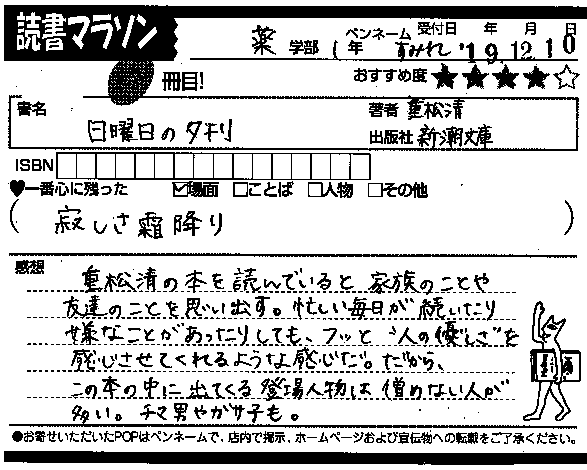 読書マラソン
薬 学部 1年 ペンネーム すみれ 受付日 '19年12月10日
冊目! おすすめ度 ★★★★☆
書名 日曜日の夕刊
著者 重松清
出版社 新潮文庫
ISBN
♥一番心に残った ☑場面 □ことば □人物 □その他
(寂しさ霜降り)
感想
重松清の本を読んでいると 家族のことや
友達のことを思い出す。忙しい毎日が 続いたり
嫌なことがあったりしても、フッと "人の優しさ"を
感じさせてくれるような感じだ。だから、
この本の中に出てくる登場人物は 憎めない人が
多い。チマ男やガサ子も。
●お寄せいただいたPOPはペンネームで、店内で掲示、ホームページおよび宣伝物への転載をご了承ください。